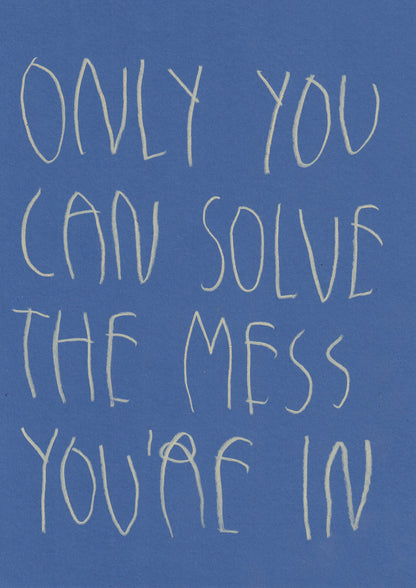 ONLY YOU
CAN SOLVE
THE MESS
YOU'RE IN